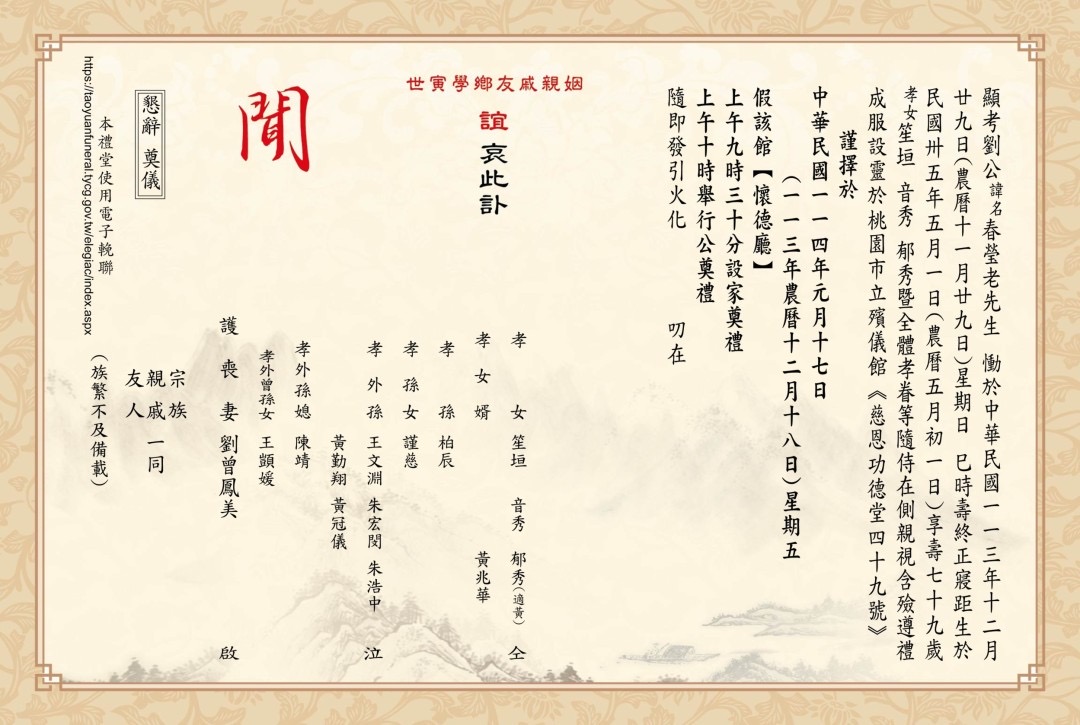 顯考劉公諱名春瑩老先生 慟於中華民國一一三年十二月
廿九日(農曆十一月廿九日)星期日 巳時壽終正寢距生於
民國卅五年五月一日(農曆五月初一日)享壽七十九歲
孝女笙垣 音秀 郁秀暨全體孝眷等隨侍在側親視含殮遵禮
成服設靈於桃園市立殯儀館《慈恩功德堂四十九號》
謹擇於
中華民國一一四年元月十七日
(一一三年農曆十二月十八日)星期五
假該館【懷德廳】
上午九時三十分設家奠禮
上午十時舉行公奠禮
隨即發引火化 叨在
世寅學鄉友戚親姻
誼哀此訃
聞
孝女 笙垣 音秀 郁秀(適黃) 仝
孝女婿 黃兆華
孝孫 柏辰
孝孫女 謹慈
孝外孫 王文淵 朱宏閔 朱浩中 泣
黃勤翔 黃冠儀
孝外孫媳 陳靖
孝外曾孫女 王顗媛
護喪妻 劉曾鳳美 啟
宗族
親戚一同
友人
(族繁不及備載)
懇辭 奠儀
本禮堂使用電子輓聯
https://taoyuanfuneral.tycg.gov.tw/elegiac/index.aspx